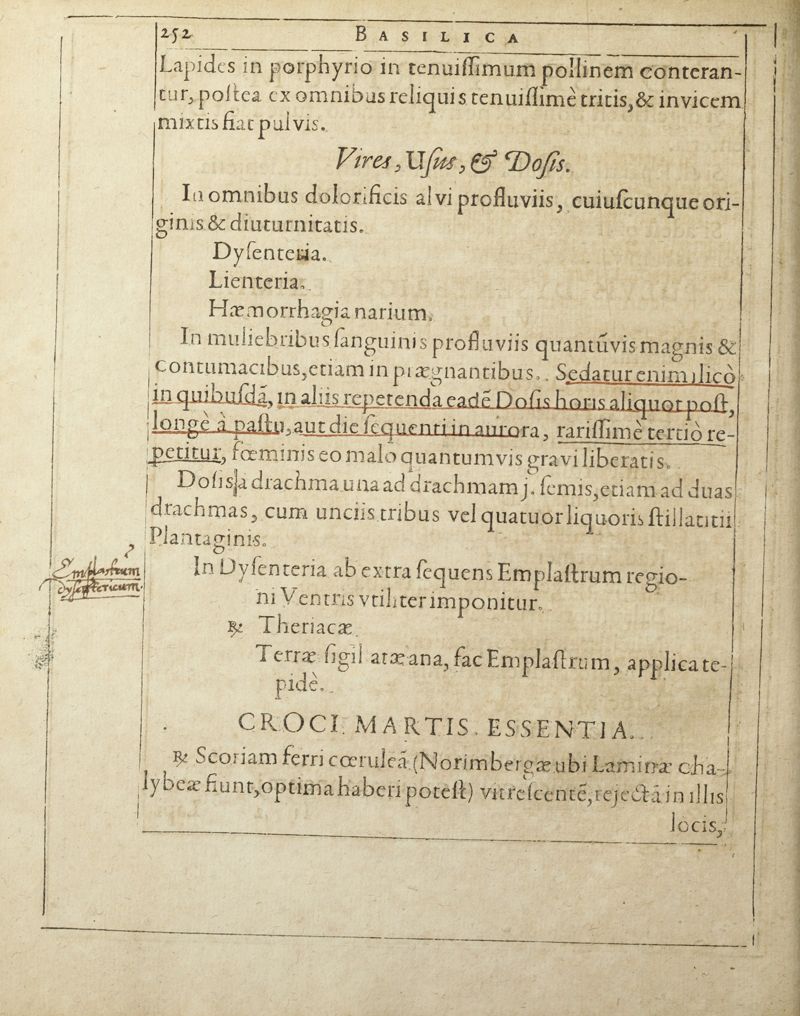 252 BASILICA
Lapides in porphyrio in tenuiſſimum pollinem conteran-
tur, poſtea ex omnibus reliquis tenuiſſimè tritis, & invicem
mixtis fiat pulvis.
Vires, Uſus, & Doſis.
In omnibus dolorificis alvi profluviis, cuiuſcunque ori-
ginis & diuturnitatis.
Dyſenteria.
Lienteria.
Hæmorrhagia narium.
In muliebribus ſanguinis profluviis quantũvis magnis &
contumacibus, etiam in prægnantibus. Sedatur enim illicò
in quibuſdã, in aliis repetenda eadẽ Doſis horis aliquot poſt,
longè à paſtu, aut die ſequenti in aurora, rariſſimè tertiò re-
petitur, fœminis eo malo quantumvis gravi liberatis.
Doſis à drachma una ad drachmam j. ſemis, etiam ad duas
drachmas, cum unciis tribus vel quatuor liquoris ſtillatitii
Plantaginis.
Emplastrum
dysentericum.
In Dyſenteria ab extra ſequens Emplaſtrum regio-
ni Ventris vtiliter imponitur.
℞ Theriacæ
Terræ ſigillatæ ana, fac Emplaſtrum, applica te-
pidè.
CROCI MARTIS ESSENTIA.
℞ Scoriam ferri cœruleã (Norimbergæ ubi Laminæ cha-
lybeæ fiunt, optima haberi poteſt) vitreſcentẽ, rejectã in illis
locis,